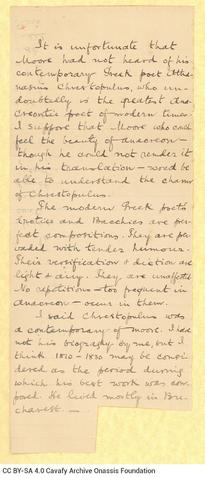 It is unfortunate that
Moore had not heard of his
contemporary Greek poet Atha-
nasius Christopulus, who un-
doubtedly is the greatest ana-
creontic poet of modern times.
I suppose that Moore who could
feel the beauty of Anacreon —
though he could not render it
in his translation — would be
able to understand the charm
of Christopulus.
The modern Greek poet's
Erotics and Bacchics are per-
fect compositions. They are per-
vaded with tender humour.
Their versification & diction are
light & airy. They are unaffected.
No repetitions — too frequent in
Anacreon — occur in them.
I said Christopulus was
a contemporary of Moore. I had
not his biography by me, but I
think 1810-1830 may be consi-
dered as the period during
which his best work was com-
posed. He lived mostly in Bu-
charest. —
CC BY-SA 4.0 Cavafy Archive Onassis Foundation